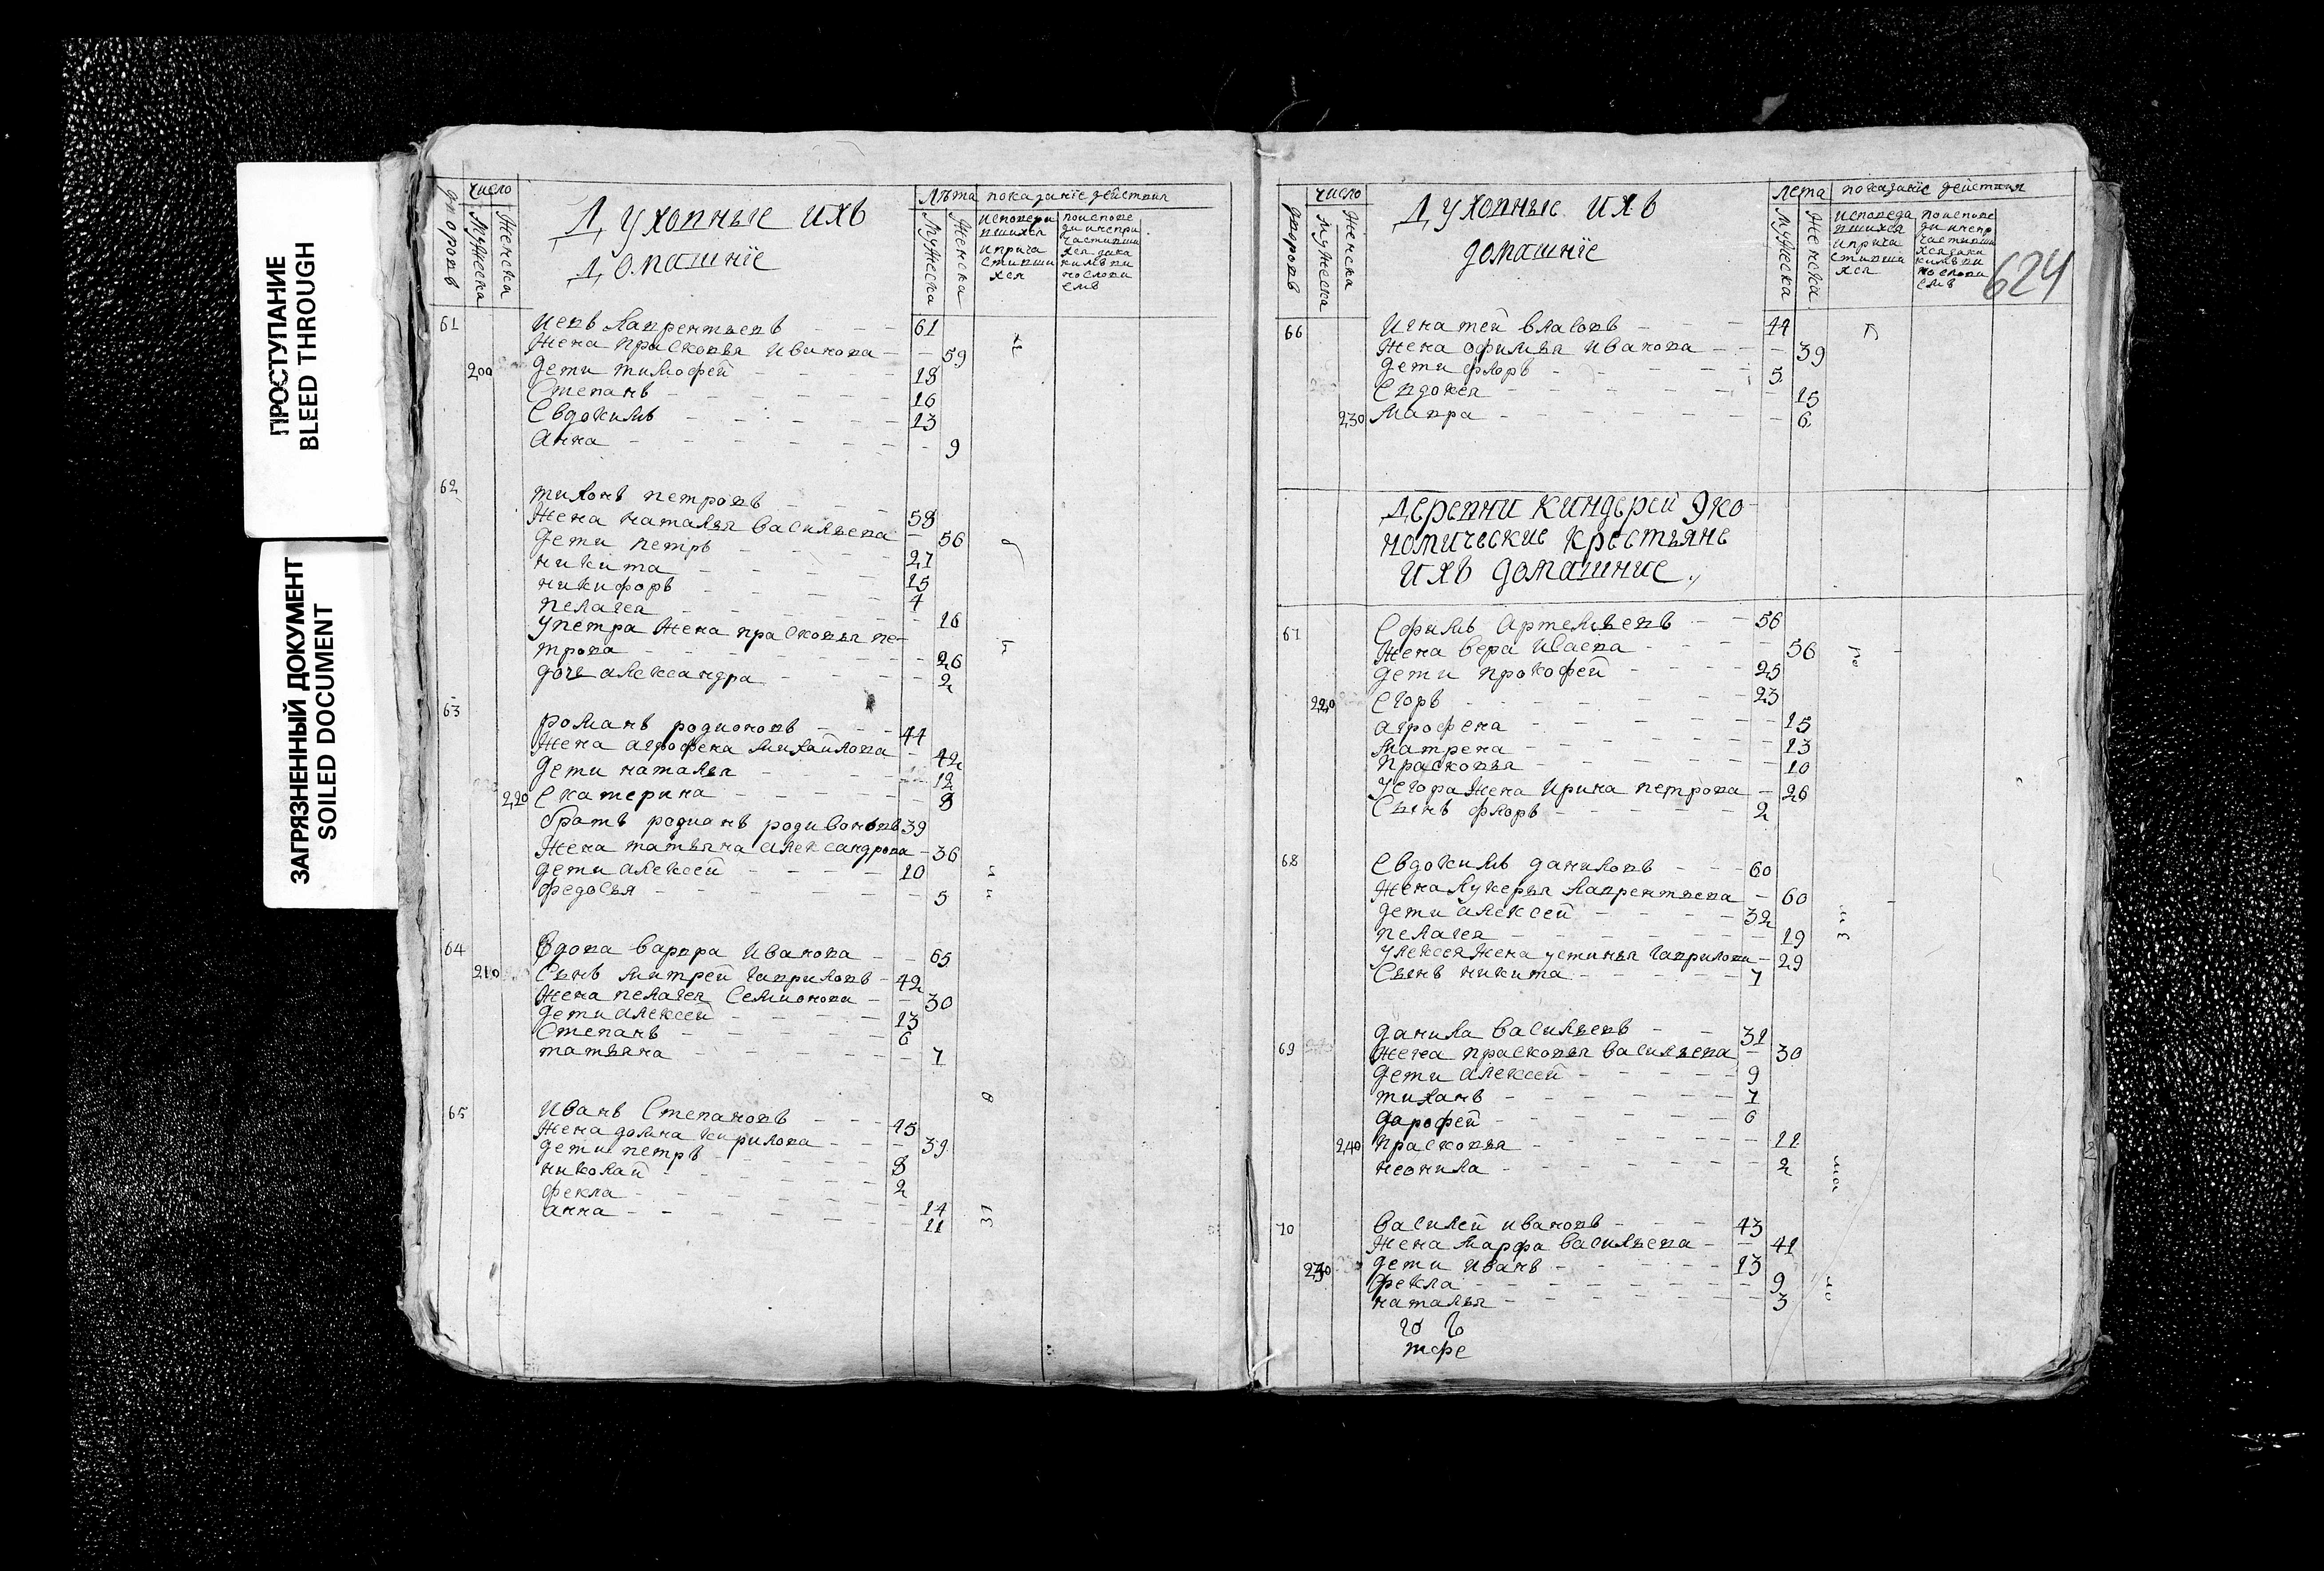 ПРОСТУПАНИЕ
BLEED THROUGH
ЗАГРЯЗНЕННЫЙ ДОКУМЕНТ
SOILED DOCUMENT
дворовъ
число
мужеска
женска
Духовные ихъ
Домашнїе
лѣта
мужеска
женска
показанїе действия
исповеда
вшихся
и прича
стивши
хся
61 Иевъ Лаврентьевъ 61
Жена Прасковья Иванова 59
200 Дети Тимофей 18
Степанъ 16
Евдокимъ 13
Анна 9
62 Тихонъ Петровъ 58
Жена Наталья Васильева 56
Дети Петръ 27
Никита 15
Никифоръ 4
Пелагея 16
У Петра Жена Прасковья Пе-
трова 26
дочь Александра 2
63 Романъ Родионовъ 44
Жена Агрофена Михайлова 42
Дети Наталья 12
220 Екатерина 8
братъ Родианъ Родивоновъ 39
Жена Татьяна Александрова 36
дети Алексей 10
Федосья 5
64 Вдова Варвра Иванова 65
210 Сынъ Митрей Гавриловъ 42
Жена Пелагея Семионова 30
Дети Алексей 13
Степанъ 6
Татьяна 7
65 Иванъ Степановъ 45
Жена Домна Кирилова 39
Дети Петръ 8
Николай 2
Фекла 14
Анна 11
дворовъ
число
мужеска
женска
Духовные ихъ
домашнїе
лета
мужеска
женска
показанїе действия
исповеда
вшихся
и прича
стивша
хся
624
66 Игнатей Власовъ 44
Жена Офимья Иванова 39
Дети Флоръ 5
Евдокея 15
230 Мавра 6
Деревни Киндерей Эко-
номические крестьяне
ихъ домашние
67 Ефимъ Артемьевъ 56
Жена Вера Исаева 56
Дети Прокофей 25
220 Егоръ 23
Агрофена 15
Матрена 13
Прасковья 10
У Егора Жена Ирина Петрова 26
Сынъ Флоръ 2
68 Евдокимъ Даниловъ 60
Жена Лукерья Лаврентьева 60
Дети Алексей 32
Пелагея 19
У Алексея Жена Устинья Гаврилова 29
Сынъ Никита 7
69 Данила Васильевъ 31
Жена Прасковья Васильева 30
Дети Алексей 9
Тиханъ 7
Дарофей 6
240 Прасковья 11
Неонила 2
70 Василей Ивановъ 43
Жена Марфа Васильева 41
230 Дети Иванъ 13
Фекла 9
Наталья 3